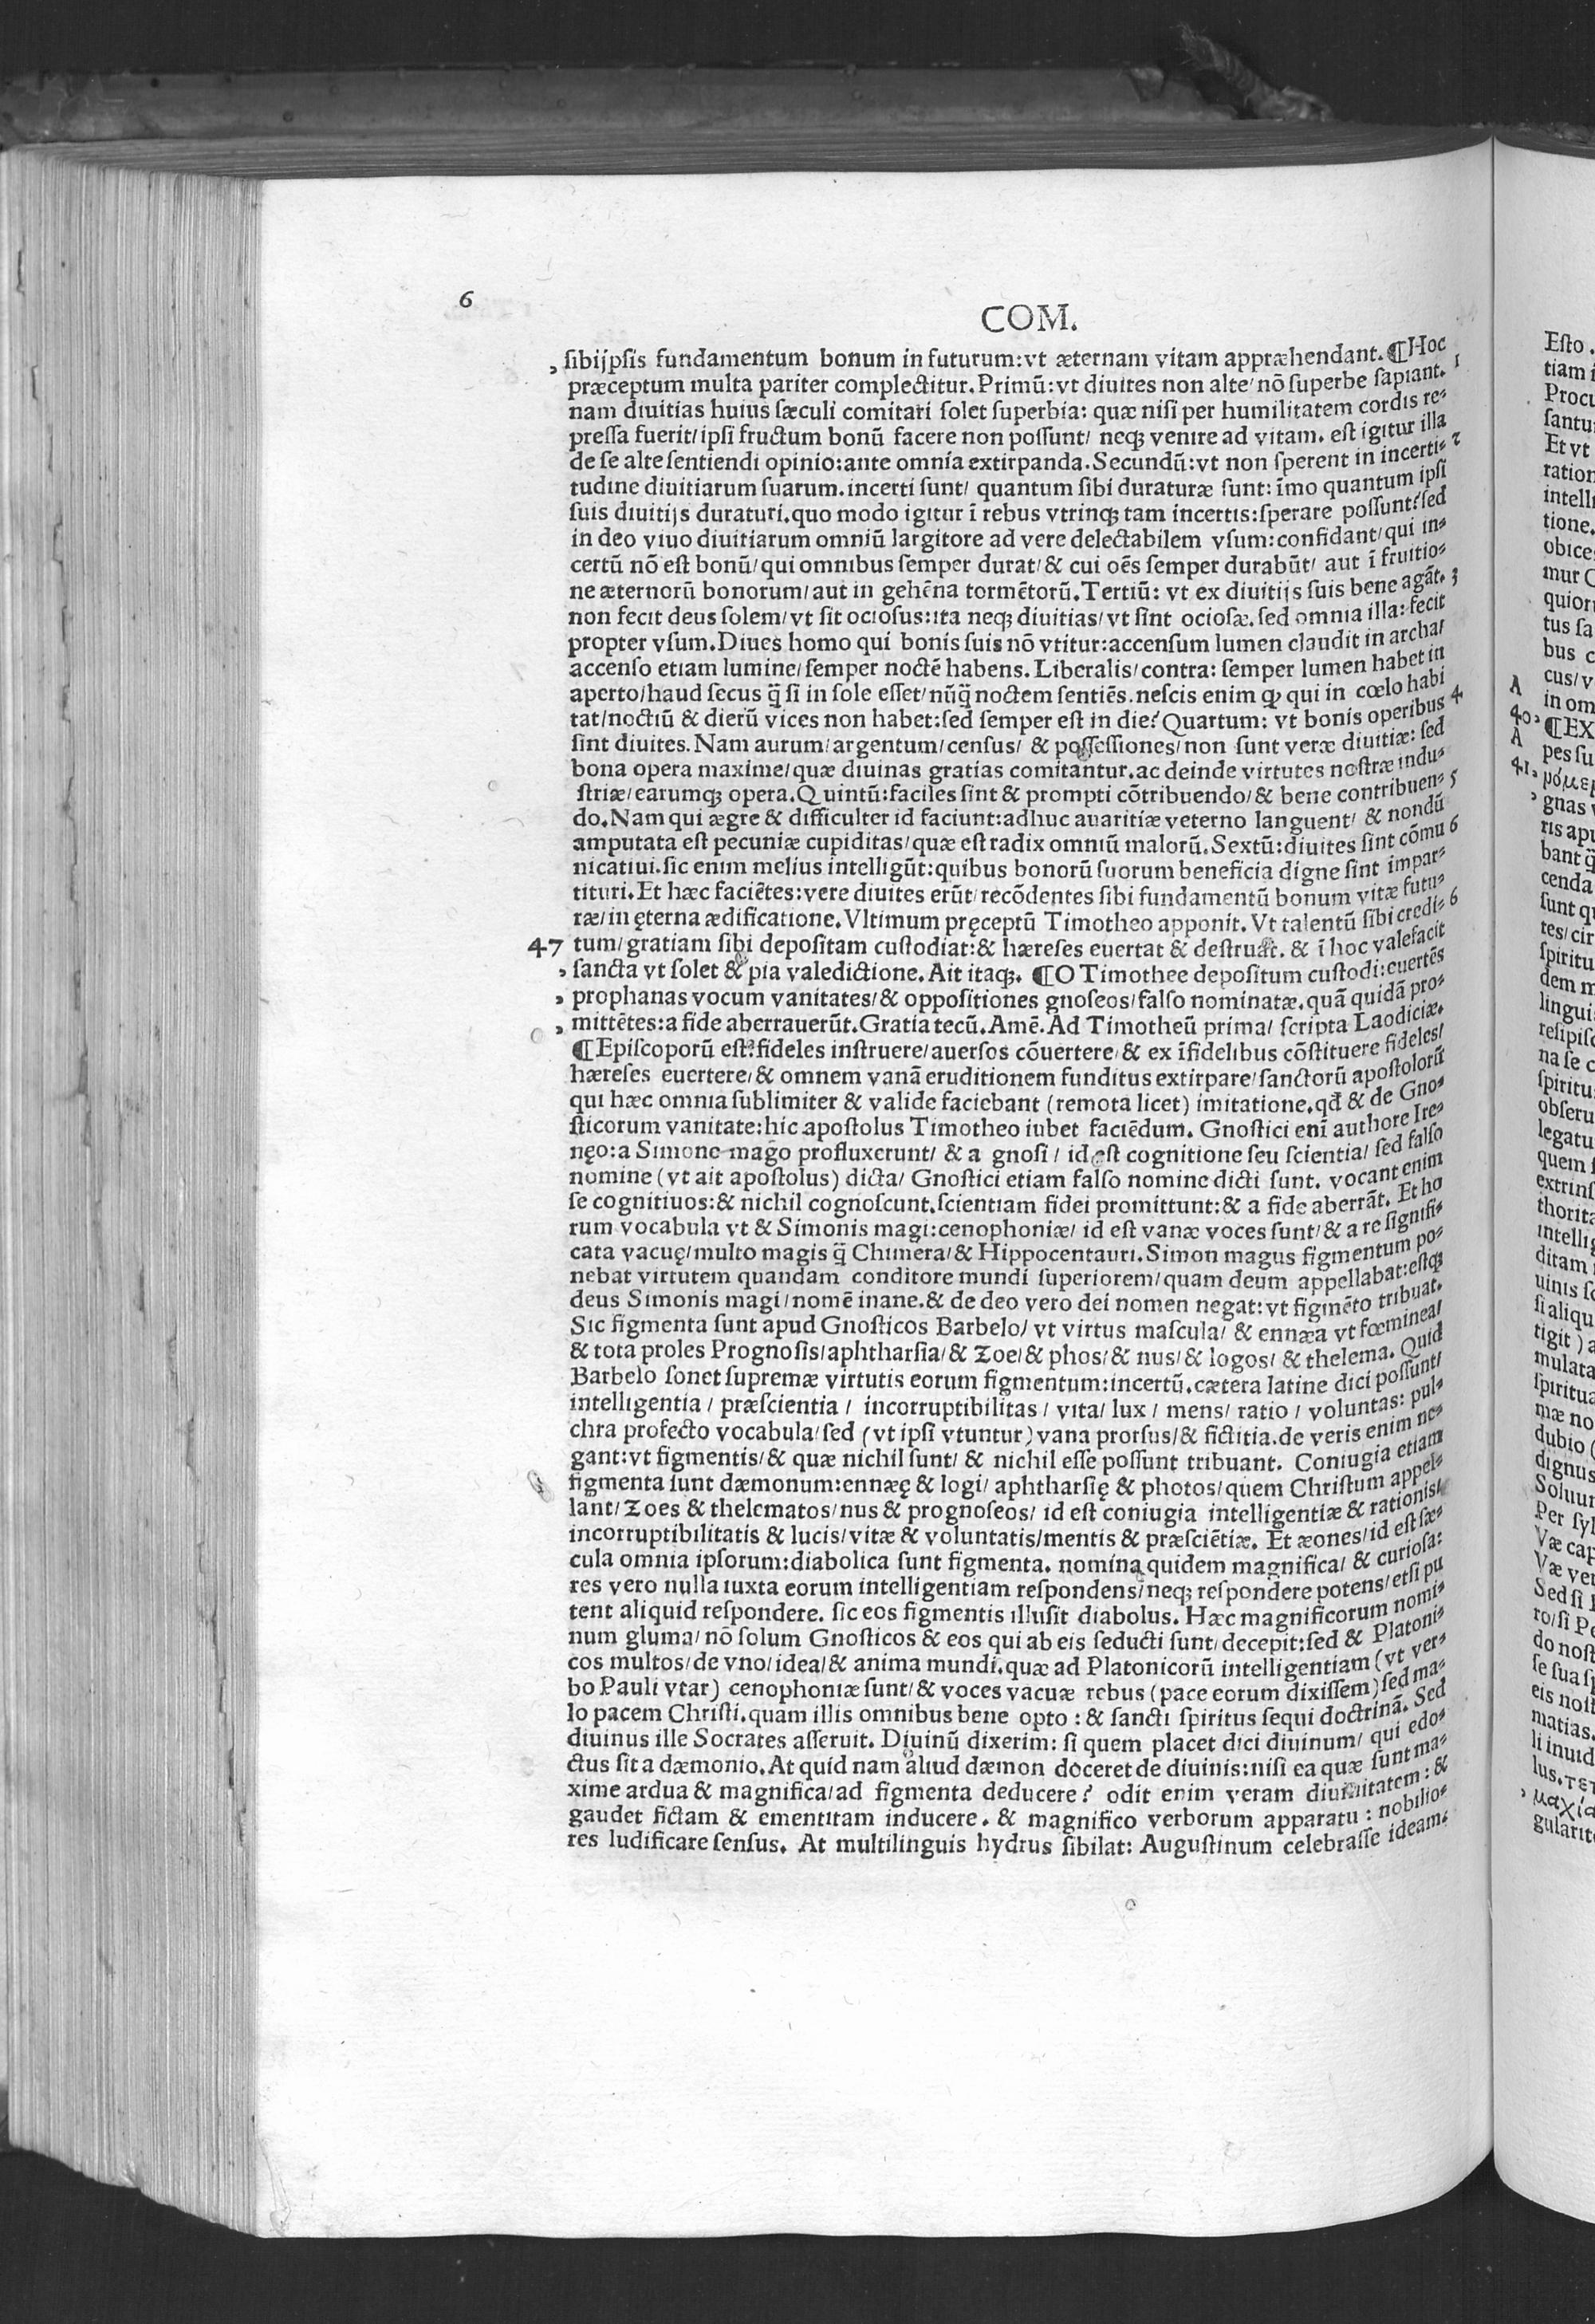 6
COM.
, ſibijpſis fundamentum bonum in futurum:vt æternam vitam appræhendant.¶Hoc
præceptum multa pariter complectitur.Primū:vt diuites non alte/nō ſuperbe ſapiant. 1
nam diuitias huius ſæculi comitari ſolet ſuperbia: quæ niſi per humilitatem cordis re-
preſſa fuerit/ipſi fructum bonū facere non poſſunt/ neqꝫ venire ad vitam. eſt igitur illa
de ſe alte ſentiendi opinio:ante omnia extirpanda.Secundū:vt non ſperent in incerti- 2
tudine diuitiarum ſuarum.incerti ſunt/ quantum ſibi duraturæ ſunt: īmo quantum ipſi
ſuis diuitijs duraturi.quo modo igitur ī rebus vtrinqꝫ tam incertis:ſperare poſſunt?ſed
in deo viuo diuitiarum omniū largitore ad vere delectabilem vſum:confidant/qui in-
certū nō eſt bonū/qui omnibus ſemper durat/& cui oēs ſemper durabūt/ aut ī fruitio-
ne æternorū bonorum/aut in gehēna tormētorū.Tertiū: vt ex diuitijs ſuis bene agāt. 3
non fecit deus ſolem/vt ſit ocioſus:ita neqꝫ diuitias/vt ſint ocioſæ.ſed omnia illa:fecit
propter vſum.Diues homo qui bonis ſuis nō vtitur:accenſum lumen claudit in archa/
accenſo etiam lumine/ſemper noctē habens.Liberalis/contra: ſemper lumen habet in
aperto/haud ſecus q̄ ſi in ſole eſſet/nūq̄ noctem ſentiēs.neſcis enim ꝙ qui in cœlo habi
tat/noctiū & dierū vices non habet:ſed ſemper eſt in die?Quartum: vt bonis operibus 4
ſint diuites.Nam aurum/argentum/cenſus/ & poſſeſſiones/non ſunt veræ diuitiæ: ſed
bona opera maxime/quæ diuinas gratias comitantur.ac deinde virtutes noſtræ indu-
ſtriæ/earumqꝫ opera.Quintū:faciles ſint & prompti cōtribuendo/& bene contribuen- 5
do.Nam qui ægre & difficulter id faciunt:adhuc auaritiæ veterno languent/ & nondū
amputata eſt pecuniæ cupiditas/quæ eſt radix omniū malorū.Sextū:diuites ſint cōmu 6
nicatiui.ſic enim melius intelligūt:quibus bonorū ſuorum beneficia digne ſint impar-
tituri.Et hæc faciētes:vere diuites erūt/recōdentes ſibi fundamentū bonum vitæ futu-
ræ/in ęterna ædificatione.Vltimum pręceptū Timotheo apponit.Vt talentū ſibi credi- 6
47 tum/gratiam ſibi depoſitam cuſtodiat:& hæreſes euertat & deſtruat. & ī hoc valefacit
, ſancta vt ſolet & pia valedictione.Ait itaqꝫ. ¶O Timothee depoſitum cuſtodi:euertēs
, prophanas vocum vanitates/& oppoſitiones gnoſeos/falſo nominatæ.quā quidā pro-
, mittētes:a fide aberrauerūt.Gratia tecū.Amē.Ad Timotheū prima/ ſcripta Laodiciæ.
¶Epiſcoporū eſt:fideles inſtruere/auerſos cōuertere/& ex īfidelibus cōſtituere fideles/
hæreſes euertere/& omnem vanā eruditionem funditus extirpare/ſanctorū apoſtolorū
qui hæc omnia ſublimiter & valide faciebant (remota licet) imitatione.qđ & de Gno-
ſticorum vanitate:hic apoſtolus Timotheo iubet faciēdum. Gnoſtici enī authore Ire-
nęo:a Simone mago profluxerunt/ & a gnoſi / id eſt cognitione ſeu ſcientia/ ſed falſo
nomine (vt ait apoſtolus) dicta/ Gnoſtici etiam falſo nomine dicti ſunt. vocant enim
ſe cognitiuos:& nichil cognoſcunt.ſcientiam fidei promittunt:& a fide aberrāt. Et ho
rum vocabula vt & Simonis magi:cenophoniæ/ id eſt vanæ voces ſunt/& a re ſignifi-
cata vacuę/multo magis q̄ Chimera/& Hippocentauri.Simon magus figmentum po-
nebat virtutem quandam conditore mundi ſuperiorem/quam deum appellabat:eſtqꝫ
deus Simonis magi/nomē inane.& de deo vero dei nomen negat:vt figmēto tribuat.
Sic figmenta ſunt apud Gnoſticos Barbelo/ vt virtus maſcula/ & ennæa vt fœminea/
& tota proles Prognoſis/aphtharſia/& Zoe/& phos/& nus/& logos/ & thelema. Quid
Barbelo ſonet ſupremæ virtutis eorum figmentum:incertū.cætera latine dici poſſunt/
intelligentia / præſcientia / incorruptibilitas / vita/ lux / mens/ ratio / voluntas: pul-
chra profecto vocabula/ſed (vt ipſi vtuntur) vana prorſus/& fictitia.de veris enim ne-
gant:vt figmentis/& quæ nichil ſunt/ & nichil eſſe poſſunt tribuant. Coniugia etiam
figmenta ſunt dæmonum:ennæę & logi/ aphtharſię & photos/quem Chriſtum appel-
lant/Zoes & thelematos/nus & prognoſeos/ id eſt coniugia intelligentiæ & rationis/
incorruptibilitatis & lucis/vitæ & voluntatis/mentis & præſciētiæ. Et æones/id eſt ſæ-
cula omnia ipſorum:diabolica ſunt figmenta. nomina quidem magnifica/ & curioſa:
res vero nulla iuxta eorum intelligentiam reſpondens/neqꝫ reſpondere potens/etſi pu
tent aliquid reſpondere. ſic eos figmentis illuſit diabolus. Hæc magnificorum nomi-
num gluma/nō ſolum Gnoſticos & eos qui ab eis ſeducti ſunt/decepit:ſed & Platoni-
cos multos/de vno/idea/& anima mundi.quæ ad Platonicorū intelligentiam (vt ver-
bo Pauli vtar) cenophoniæ ſunt/& voces vacuæ rebus (pace eorum dixiſſem) ſed ma-
lo pacem Chriſti.quam illis omnibus bene opto : & ſancti ſpiritus ſequi doctrinā. Sed
diuinus ille Socrates aſſeruit. Diuinū dixerim: ſi quem placet dici diuinum/ qui edo-
ctus ſit a dæmonio.At quid nam aliud dæmon doceret de diuinis:niſi ea quæ ſunt ma-
xime ardua & magnifica/ad figmenta deducere? odit enim veram diuinitatem: &
gaudet fictam & ementitam inducere. & magnifico verborum apparatu : nobilio-
res ludificare ſenſus. At multilinguis hydrus ſibilat: Auguſtinum celebraſſe ideam: